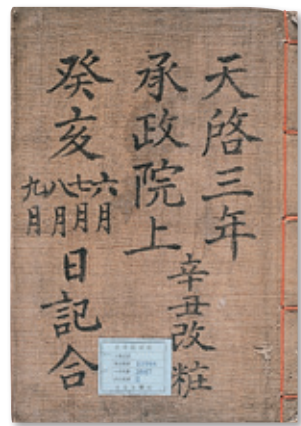 天啓三年
承政院上
辛丑改粧
癸亥
六月
七月
八月
九月
日記合